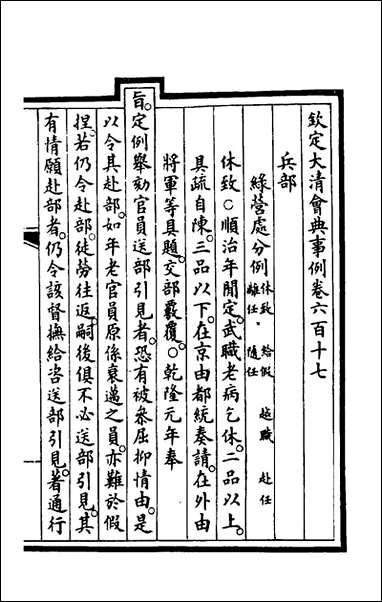 欽定大清會典事例卷六百十七
兵部
綠營處分例 休致 給假 越職 赴任 離任 隨任
休致○順治年閒定。武職老病乞休。二品以上。
具疏自陳。三品以下。在京由都統奏請。在外由
將軍等具題。交部覈覆。○乾隆元年奉
旨。定例舉劾官員送部引見者。恐有被參屈抑情由。是
以令其赴部。如年老官員原係衰邁之員。亦難於假
捏。若仍令赴部。徒勞往返。嗣後俱不必送部引見。其
有情願赴部者。仍令該督撫給咨送部引見。著通行